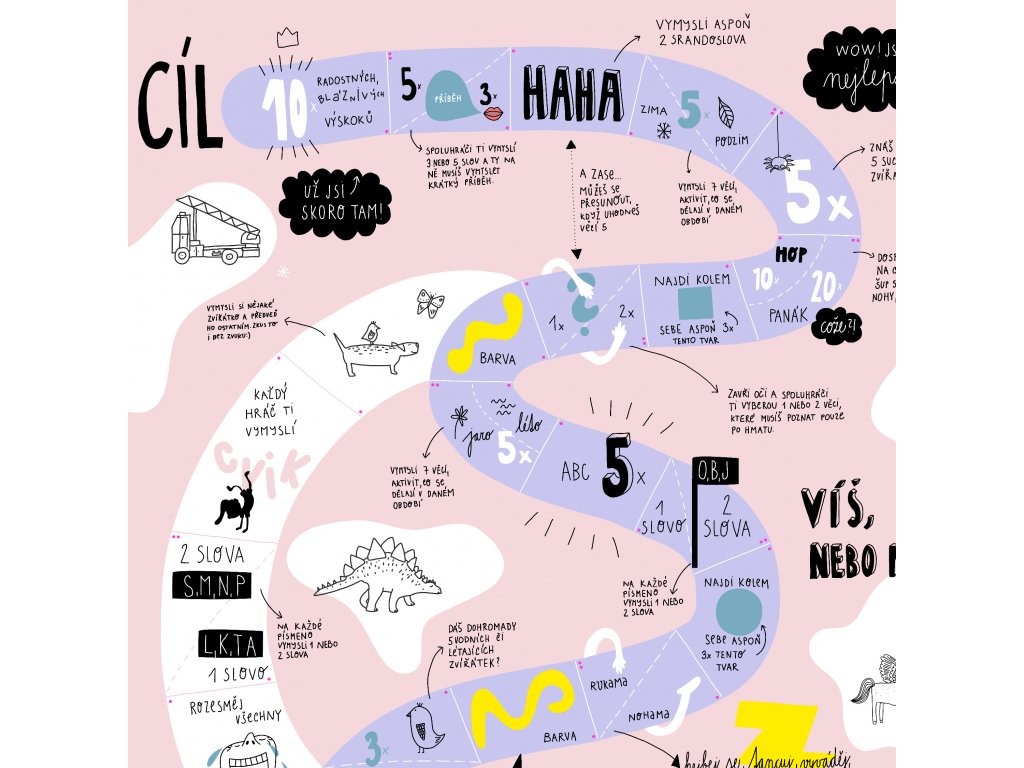 CÍL
10x
RADOSTNÝCH,
BLÁZNIVÝCH
VÝSKOKŮ
5x
PŘÍBĚH
3x
HAHA
VYMYSLI ASPOŇ
2 SRANDOSLOVA
WOW! JS
nejlep
ZIMA
5x
PODZIM
SPOLUHRÁČI TI VYMYSLÍ
3 NEBO 5 SLOV A TY NA
NĚ MUSÍŠ VYMYSLET
KRÁTKÝ PŘÍBĚH.
UŽ JSI
SKORO TAM!
A ZASE...
MŮŽEŠ SE
PŘESUNOUT,
KDYŽ UHODNEŠ
VĚCÍ 5
VYMYSLI 7 VĚCÍ,
AKTIVIT, CO SE
DĚLAJÍ V DANÉM
OBDOBÍ
5x
ZNÁŠ
5 SUC
ZVÍŘA
HOP
10x
20x
PANÁK
COŽE?!
DOSK
NA O
ŠUP S
NOHY,
NAJDI KOLEM
SEBE ASPOŇ 3x
TENTO TVAR
1x
?
2x
BARVA
VYMYSLI SI NĚJAKÉ
ZVÍŘÁTKO A PŘEDVEĎ
HO OSTATNÍM. ZKUS TO
I BEZ ZVUKU:)
ZAVŘI OČI A SPOLUHRÁČI
TI VYBEROU 1 NEBO 2 VĚCI,
KTERÉ MUSÍŠ POZNAT POUZE
PO HMATU.
KAŽDÝ
HRÁČ TI
VYMYSLÍ
CVIK
jaro
léto
5x
VYMYSLI 7 VĚCÍ,
AKTIVIT, CO SE
DĚLAJÍ V DANÉM
OBDOBÍ
ABC 5x
O,B,J
1
SLOVO
2
SLOVA
VÍŠ,
NEBO
2 SLOVA
S,M,N,P
L,K,T,A
1 SLOVO
NA KAŽDÉ
PÍSMENO
VYMYSLI 1 NEBO
2 SLOVA
NA KAŽDÉ
PÍSMENO
VYMYSLI 1 NEBO
2 SLOVA
NAJDI KOLEM
SEBE ASPOŇ
3x TENTO
TVAR
DÁŠ DOHROMADY
5 VODNÍCH ČI
LÉTAJÍCÍCH
ZVÍŘÁTEK?
ROZESMĚJ
VŠECHNY
3x
BARVA
RUKAMA
NOHAMA
hejbej se, tancuj, vyváděj,